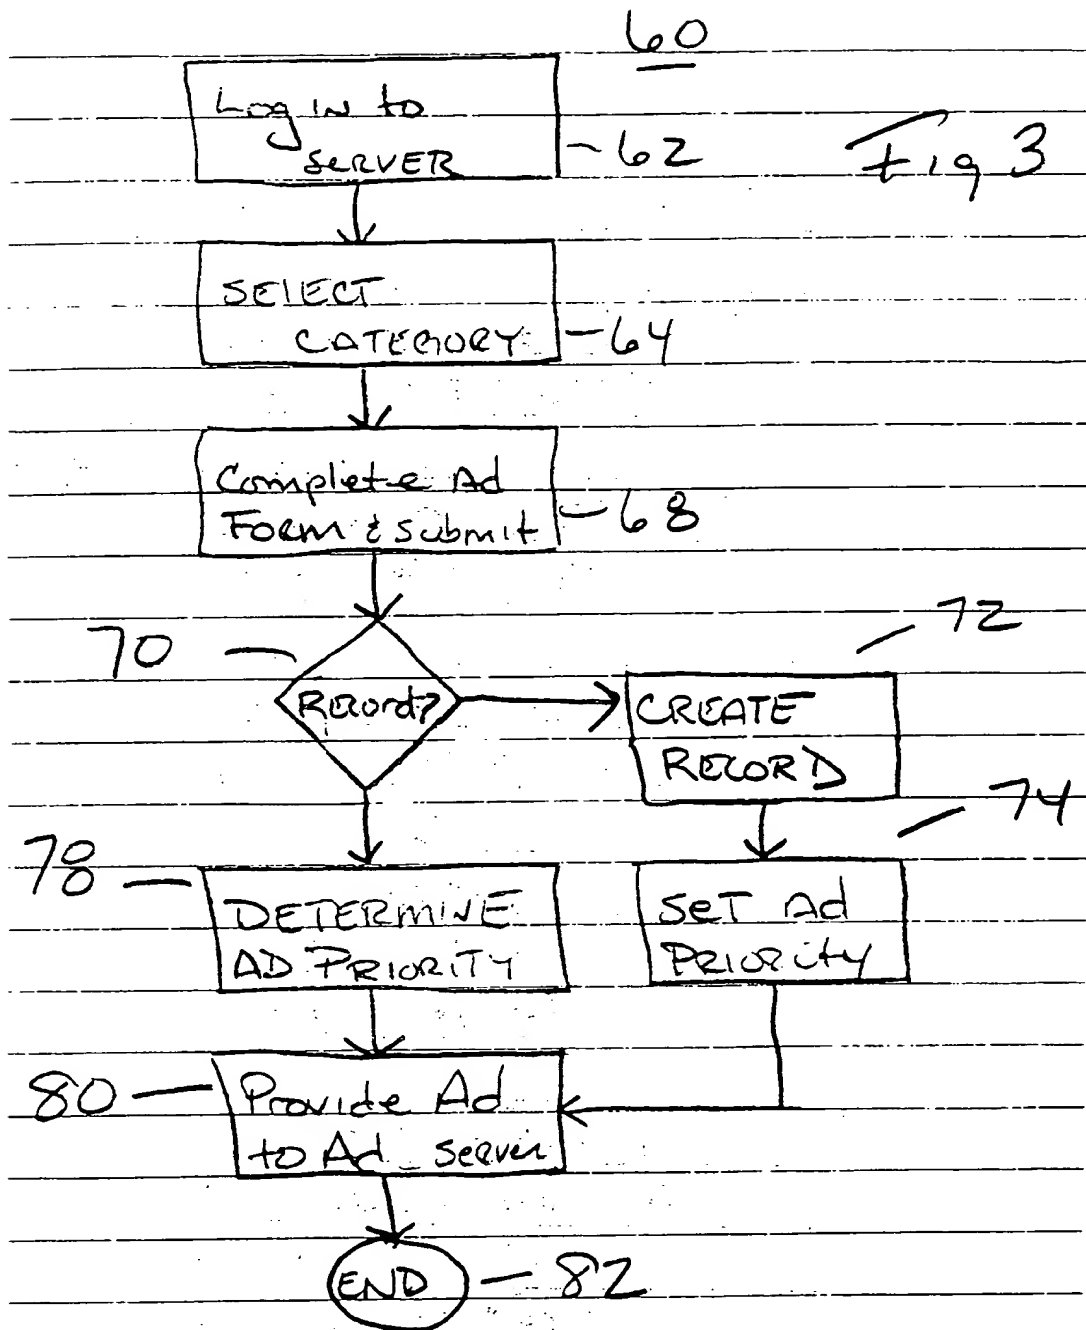 60
Log in to
SERVER
62
Fig 3
SELECT
CATEGORY
64
Complete Ad
Form & Submit
68
70
Record?
72
CREATE
RECORD
74
78
DETERMINE
AD PRIORITY
SET Ad
PRIORITY
80
Provide Ad
to Ad server
END
82